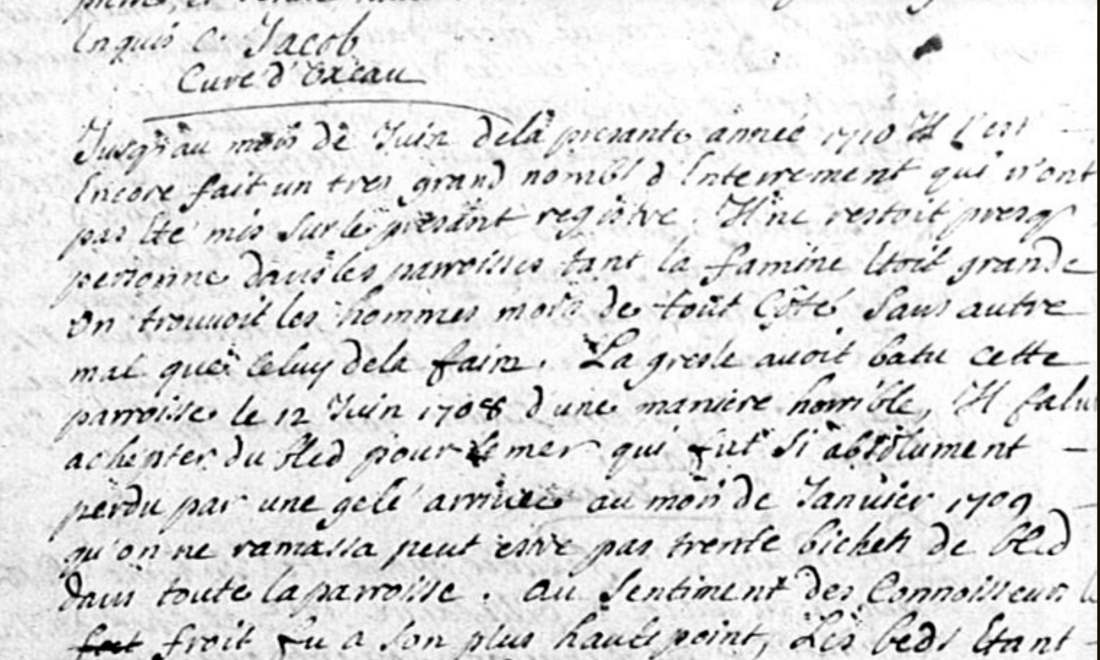 Enquis Ce Jacob
Curé d'Ozeau
Jusqu'au mois de Juin dela presante année 1710 Il s'est
Encore fait un tres grand nombr d Enterrement qui n'ont
pas Eté mis sur le presant registre. Il ne restoit presq
personne dans les parroisses tant la famine Etoit grande
On trouvoit les hommes mors de tout Côté Sans autre
mal que Celuy dela faim. La gresle avoit batu cette
parroisse le 12 Juin 1708 d'une maniere horrible, Il falu
achepter du bled pour semer qui fut Si absolument
perdu par une gelé arrivée au mois de Janvier 1709
qu'on ne ramassa peut estre pas trente bichets de bled
dans toute la parroisse. Au Sentiment des Connoisseurs le
froit fu a son plus haut point, Les beds Etant